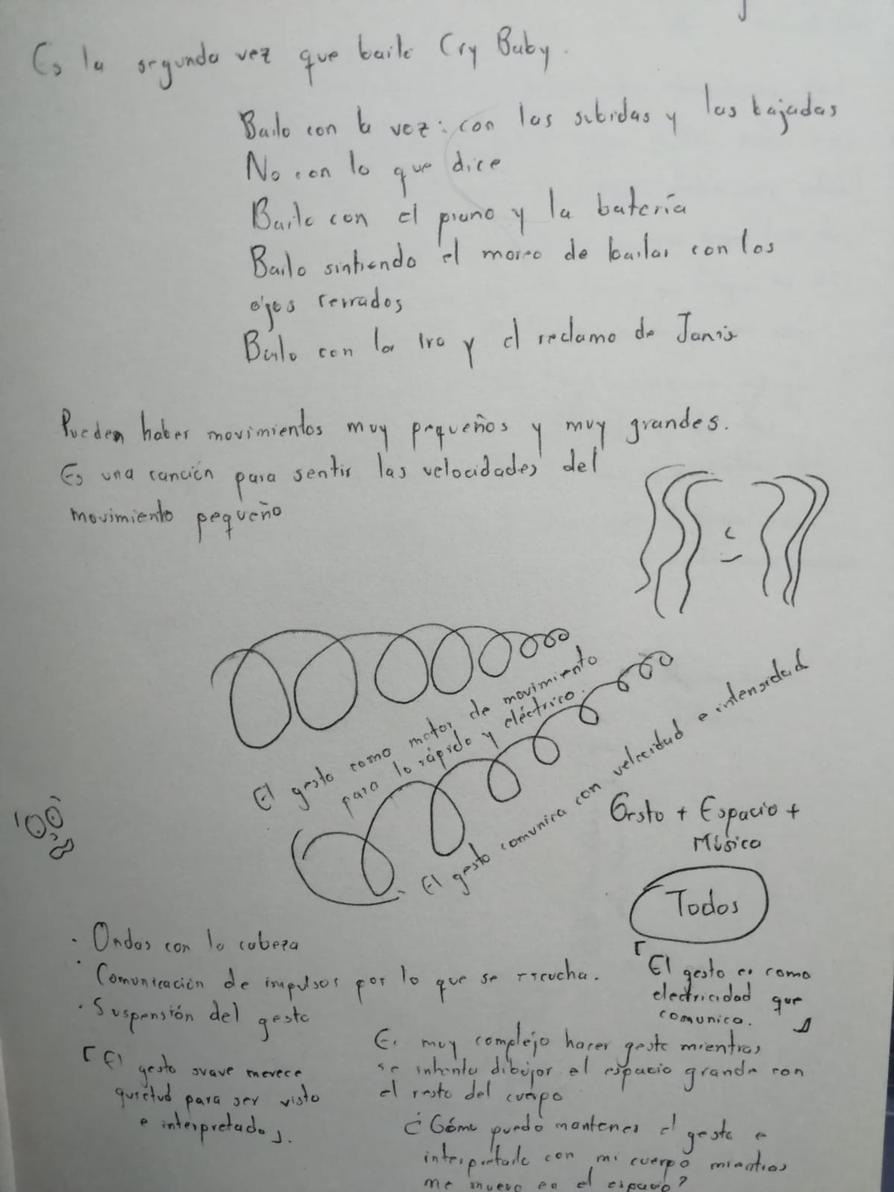 Es la segunda vez que bailo Cry Baby.
Bailo con la voz: con las subidas y las bajadas
No con lo que dice
Bailo con el piano y la batería
Bailo sintiendo el mareo de bailar con los
ojos cerrados
Bailo con la Ira y el reclamo de Janis
Pueden haber movimientos muy pequeños y muy grandes.
Es una canción para sentir las velocidades del
movimiento pequeño
El gesto como motor de movimiento
para lo rápido y eléctrico.
El gesto comunica con velocidad e intensidad
Gesto + Espacio +
Música
Todos
· Ondas con la cabeza
· Comunicación de impulsos por lo que se escucha.
· Suspensión del gesto
「El gesto es como
electricidad que
comunica.」
「El gesto suave merece
quietud para ser visto
e interpretado」.
Es muy complejo hacer gesto mientras
se intenta dibujar el espacio grande con
el resto del cuerpo
¿Cómo puedo mantener el gesto e
interpretarlo con mi cuerpo mientras
me muevo en el espacio?